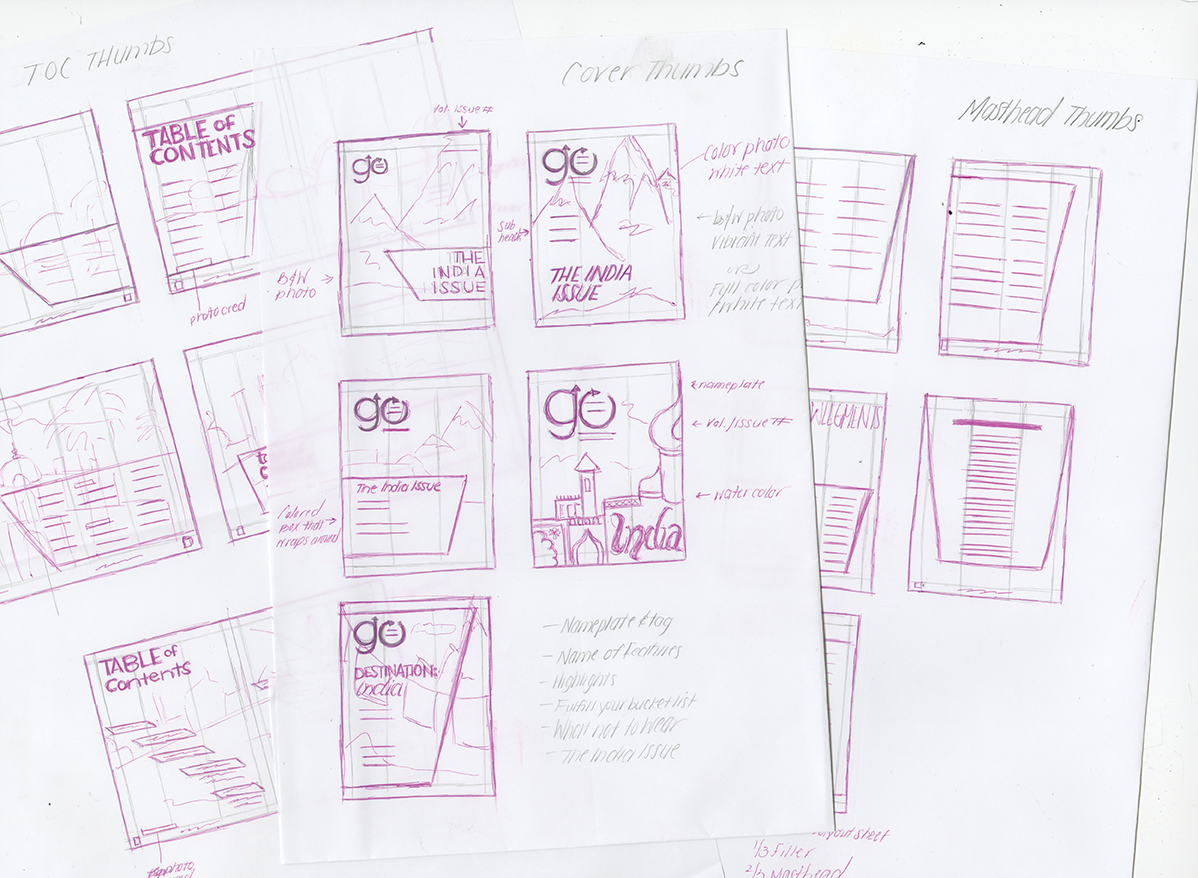 TOC THUMBS
TABLE of
CONTENTS
photo cred
TABLE of
Contents
Cover Thumbs
Vol. issue #
go
THE
INDIA
ISSUE
B&W
photo
go
THE INDIA
ISSUE
Sub
heads
Color photo
white text
b&w photo
vibrant text
OR
Full color p
/white text
go
The India Issue
Colored
Box that
wraps around
go
India
nameplate
vol./issue #
water color
go
DESTINATION:
india
- Nameplate & tag
- Name of features
- Highlights
- Fulfill your bucket list
- What not to wear
- The India Issue
Masthead Thumbs
yout sheet
1/3 Filler
2/3 Masthead